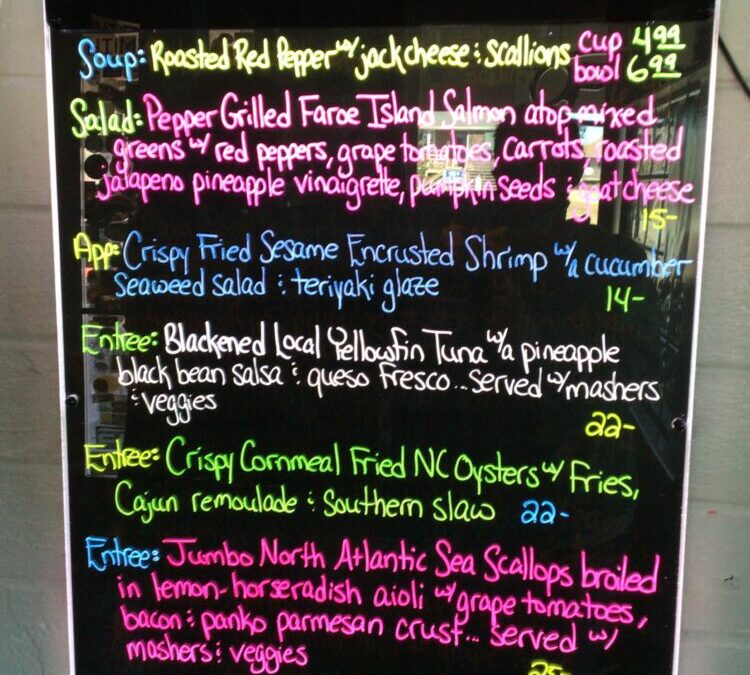 Soup: Roasted Red Pepper w/ jack cheese & scallions cup 4.99
bowl 6.99
Salad: Pepper Grilled Faroe Island Salmon atop mixed
greens w/ red peppers, grape tomatoes, carrots, roasted
jalapeno pineapple vinaigrette, pumpkin seeds & goat cheese
15-
App: Crispy Fried Sesame Encrusted Shrimp w/a cucumber
Seaweed salad & teriyaki glaze
14-
Entree: Blackened Local Yellowfin Tuna w/a pineapple
black bean salsa & queso fresco... served w/ mashers
& veggies
22-
Entree: Crispy Cornmeal Fried NC Oysters w/ Fries,
Cajun remoulade & Southern slaw 22-
Entree: Jumbo North Atlantic Sea Scallops broiled
in lemon-horseradish aioli w/ grape tomatoes,
bacon & panko parmesan crust... served w/
mashers & veggies
25-